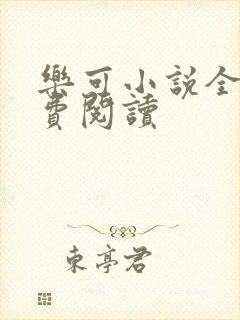 樂可小說全
費閱讀
東亭君